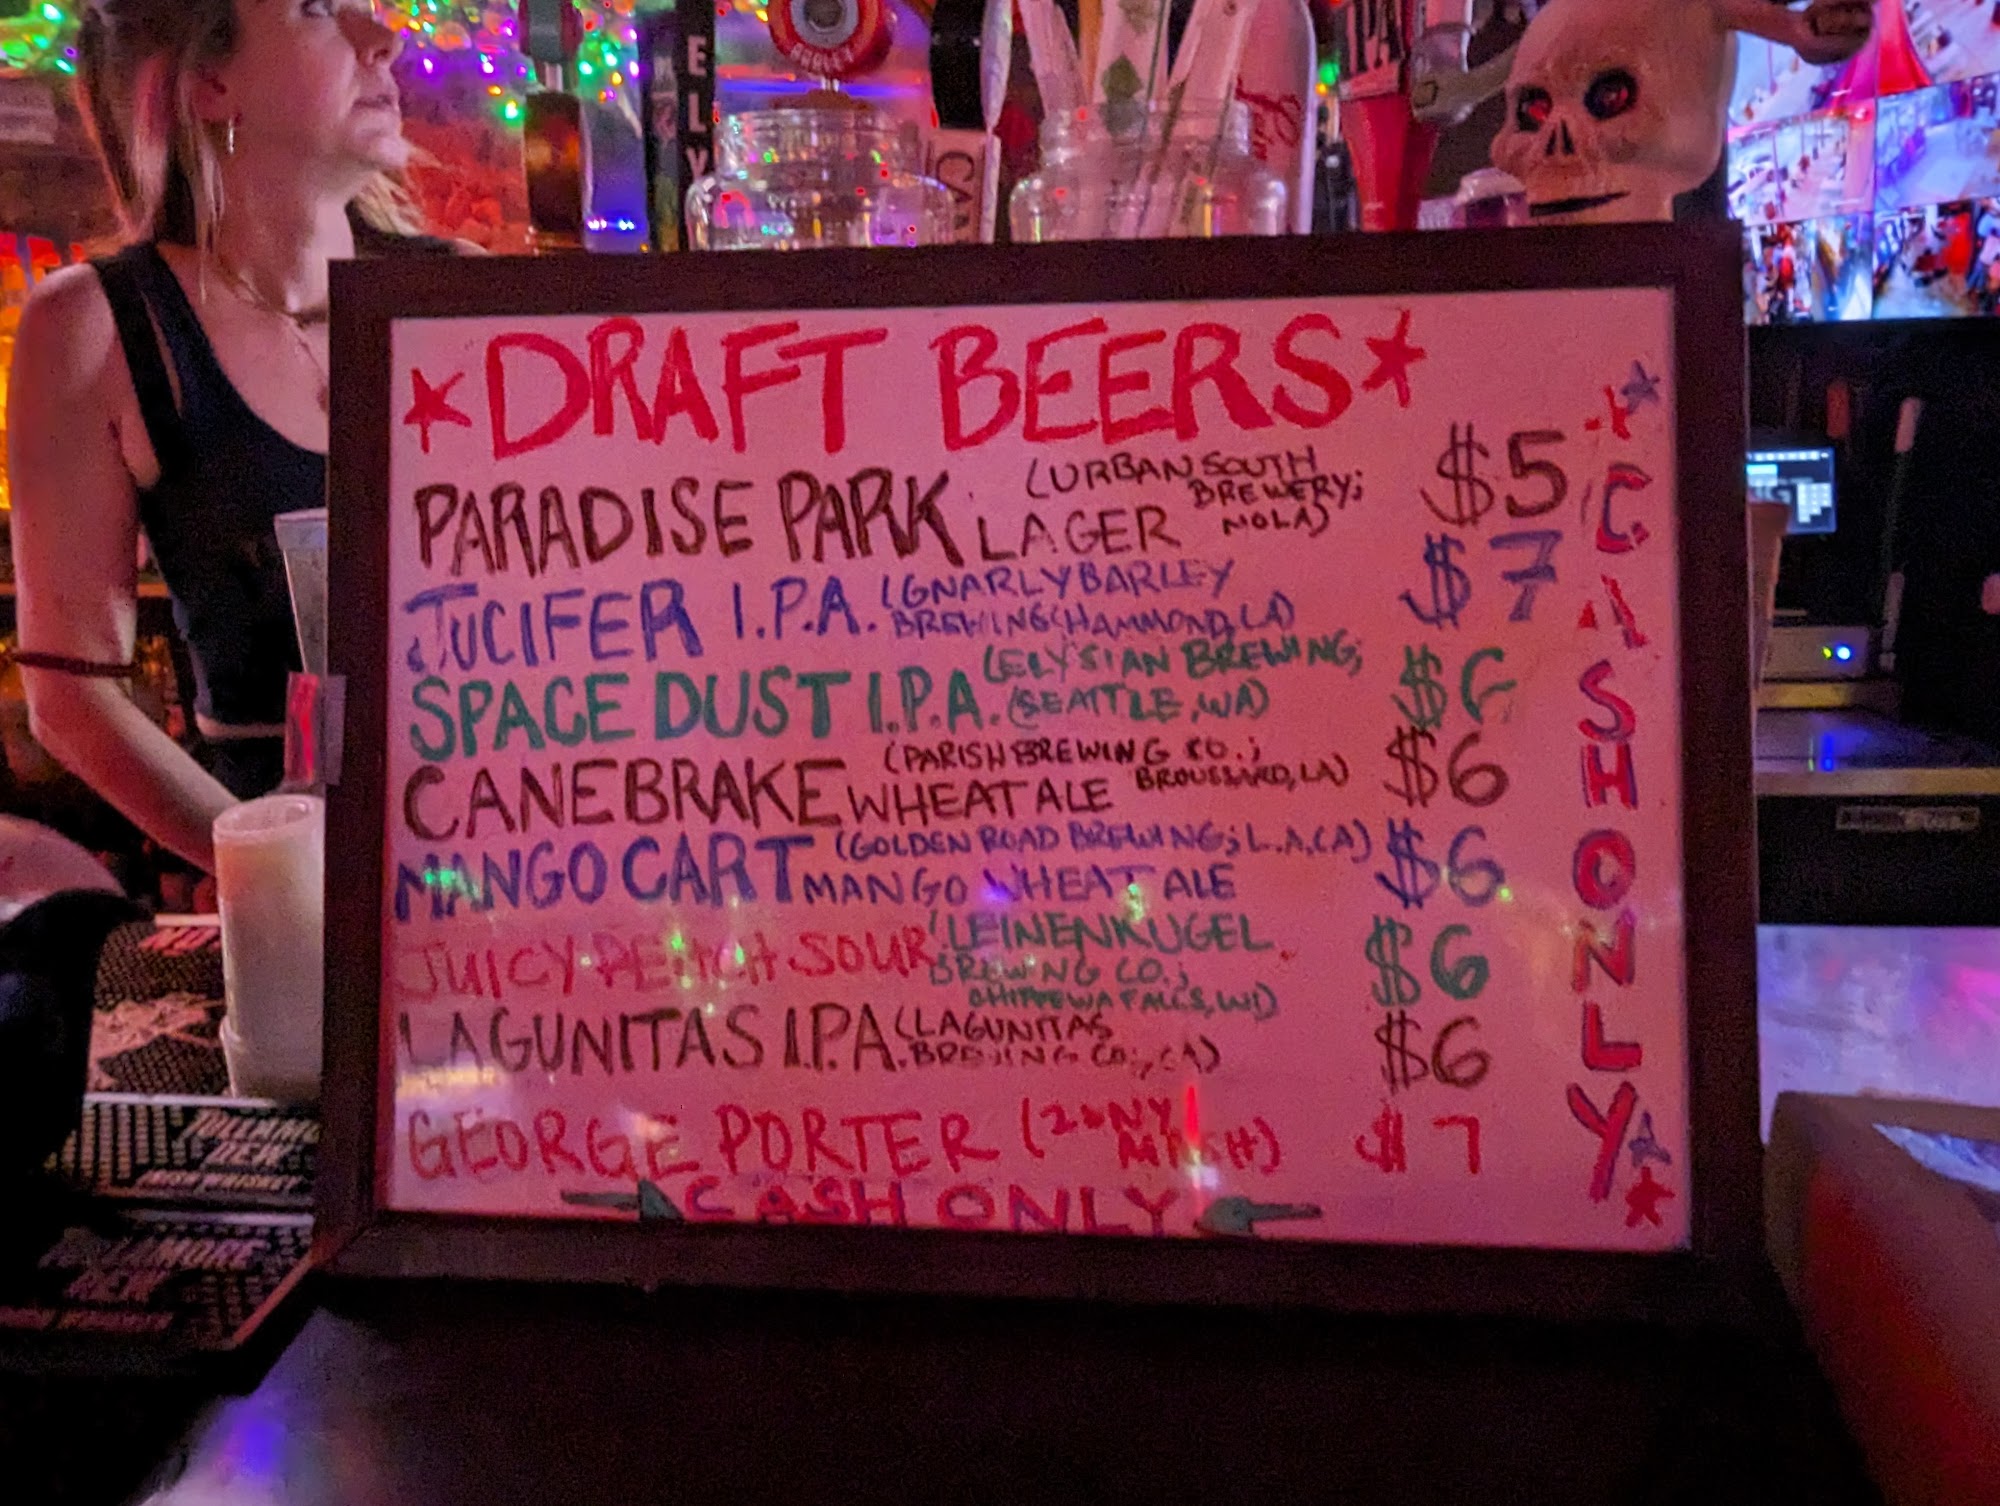 BARLEY
ELY
IPA
CAN
★DRAFT BEERS★
PARADISE PARK LAGER (URBAN SOUTH BREWERY; NOLA) $5
JUCIFER I.P.A. (GNARLY BARLEY BREWING (HAMMOND, LA) $7
SPACE DUST I.P.A. (ELYSIAN BREWING; (SEATTLE, WA) $6
CANEBRAKE WHEAT ALE (PARISH BREWING CO.; BROUSSARD, LA) $6
MANGO CART MANGO WHEAT ALE (GOLDEN ROAD BREWING; L.A, CA) $6
JUICY PEACH SOUR (LEINENKUGEL BREWING CO.; CHIPPEWA FALLS, WI) $6
LAGUNITAS I.P.A. (LAGUNITAS BREWING CO., CA) $6
GEORGE PORTER $7
CASH ONLY
CASH ONLY
TULLAMORE
DEW
IRISH WHISKEY
TULLAMORE
DEW